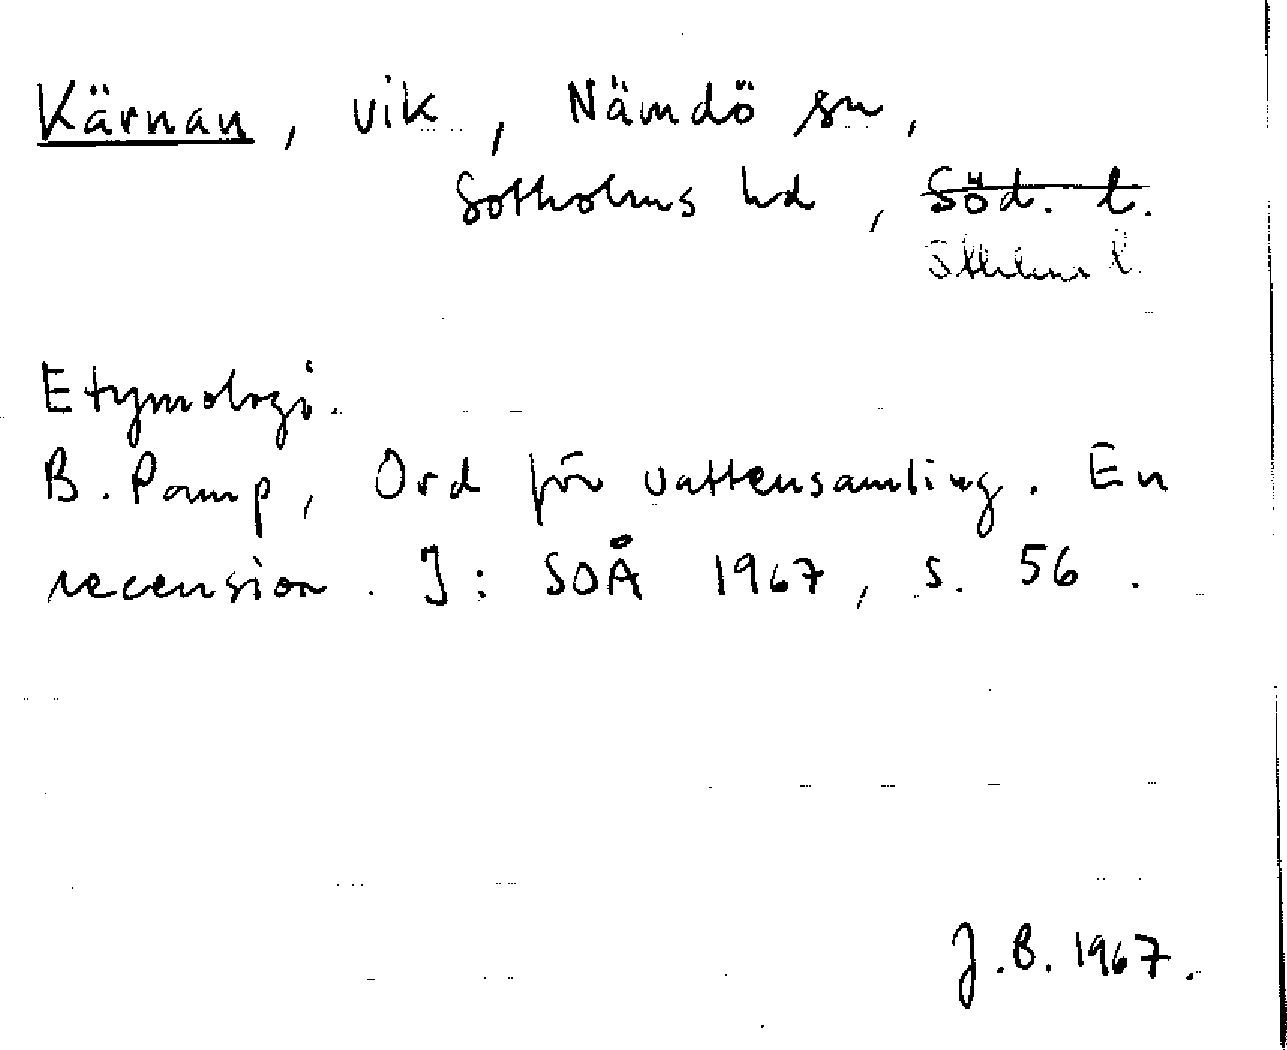 Kärnan, vik, Nämdö sn,
Sotholms hd, Söd. l.
Sthlms l.
Etymologi.
B. Pamp, Ord för vattensamling. En
recension. I: SOÅ 1967, s. 56.
J.B. 1967.